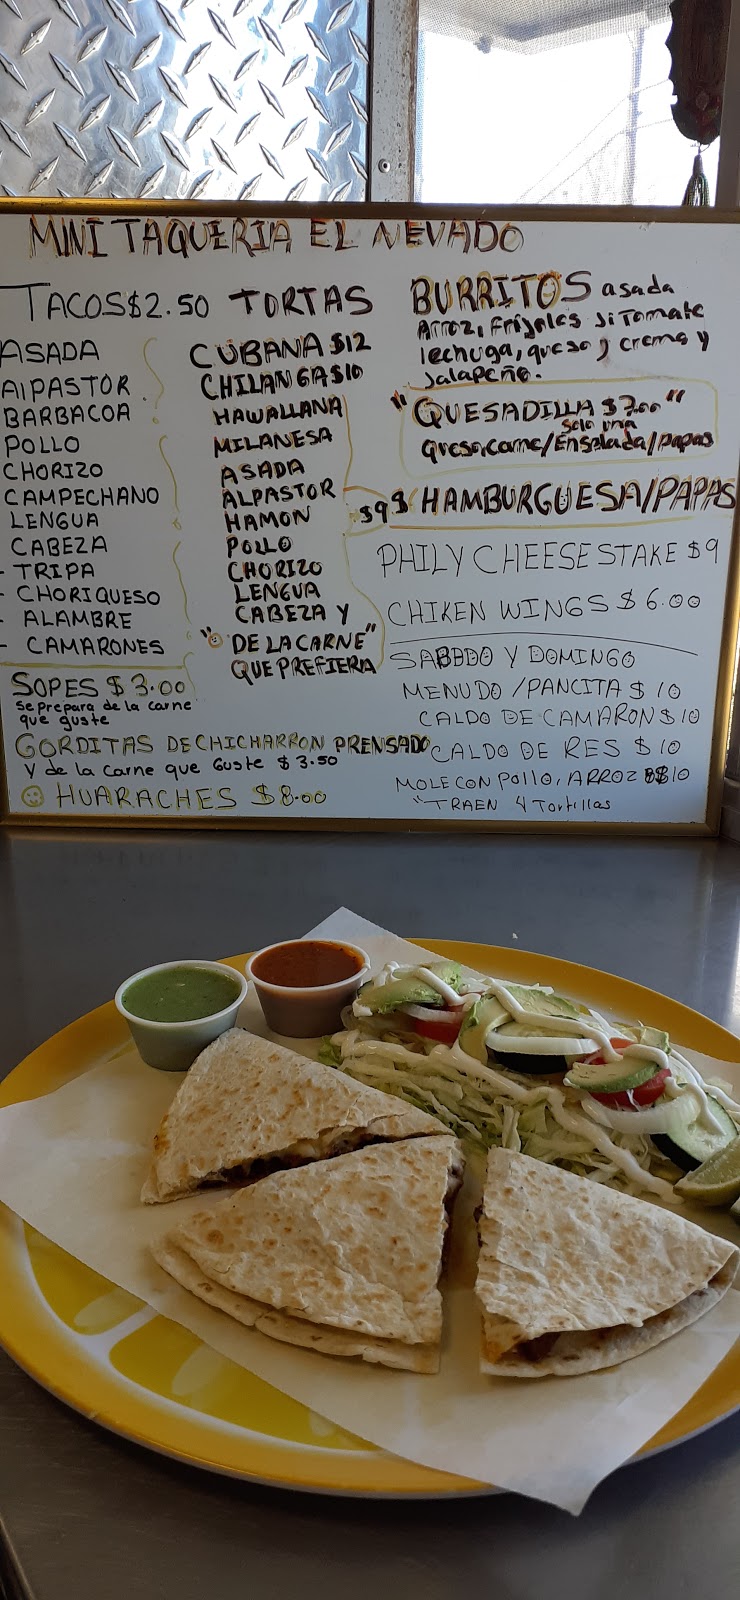 MINI TAQUERIA EL NEVADO
TACOS $2.50
ASADA
AlPASTOR
BARBACOA
POLLO
CHORIZO
CAMPECHANO
LENGUA
CABEZA
- TRIPA
- CHORIQUESO
- ALAMBRE
- CAMARONES
SOPES $3.00
se prepara de la carne
que guste
GORDITAS DE CHICHARRON PRENSADO
Y de la carne que Guste $3.50
HUARACHES $8.00
TORTAS
CUBANA $12
CHILANGA $10
HAWALLANA
MILANESA
ASADA
ALPASTOR
HAMON
POLLO
CHORIZO
LENGUA
CABEZA Y
"DE LA CARNE"
QUE PREFIERA
$9
BURRITOS asada
Arroz, frijoles JiTomate
lechuga, queso, crema y
Jalapeño.
"QUESADILLA $7.00"
solo una
queso,carne/Ensalada/papas
$ HAMBURGUESA/PAPAS
PHILY CHEESE STAKE $9
CHIKEN WINGS $6.00
SABADO Y DOMINGO
MENUDO/PANCITA $10
CALDO DE CAMARON $10
CALDO DE RES $10
MOLE CON POLLO, ARROZ $10
"TRAEN 4 Tortillas